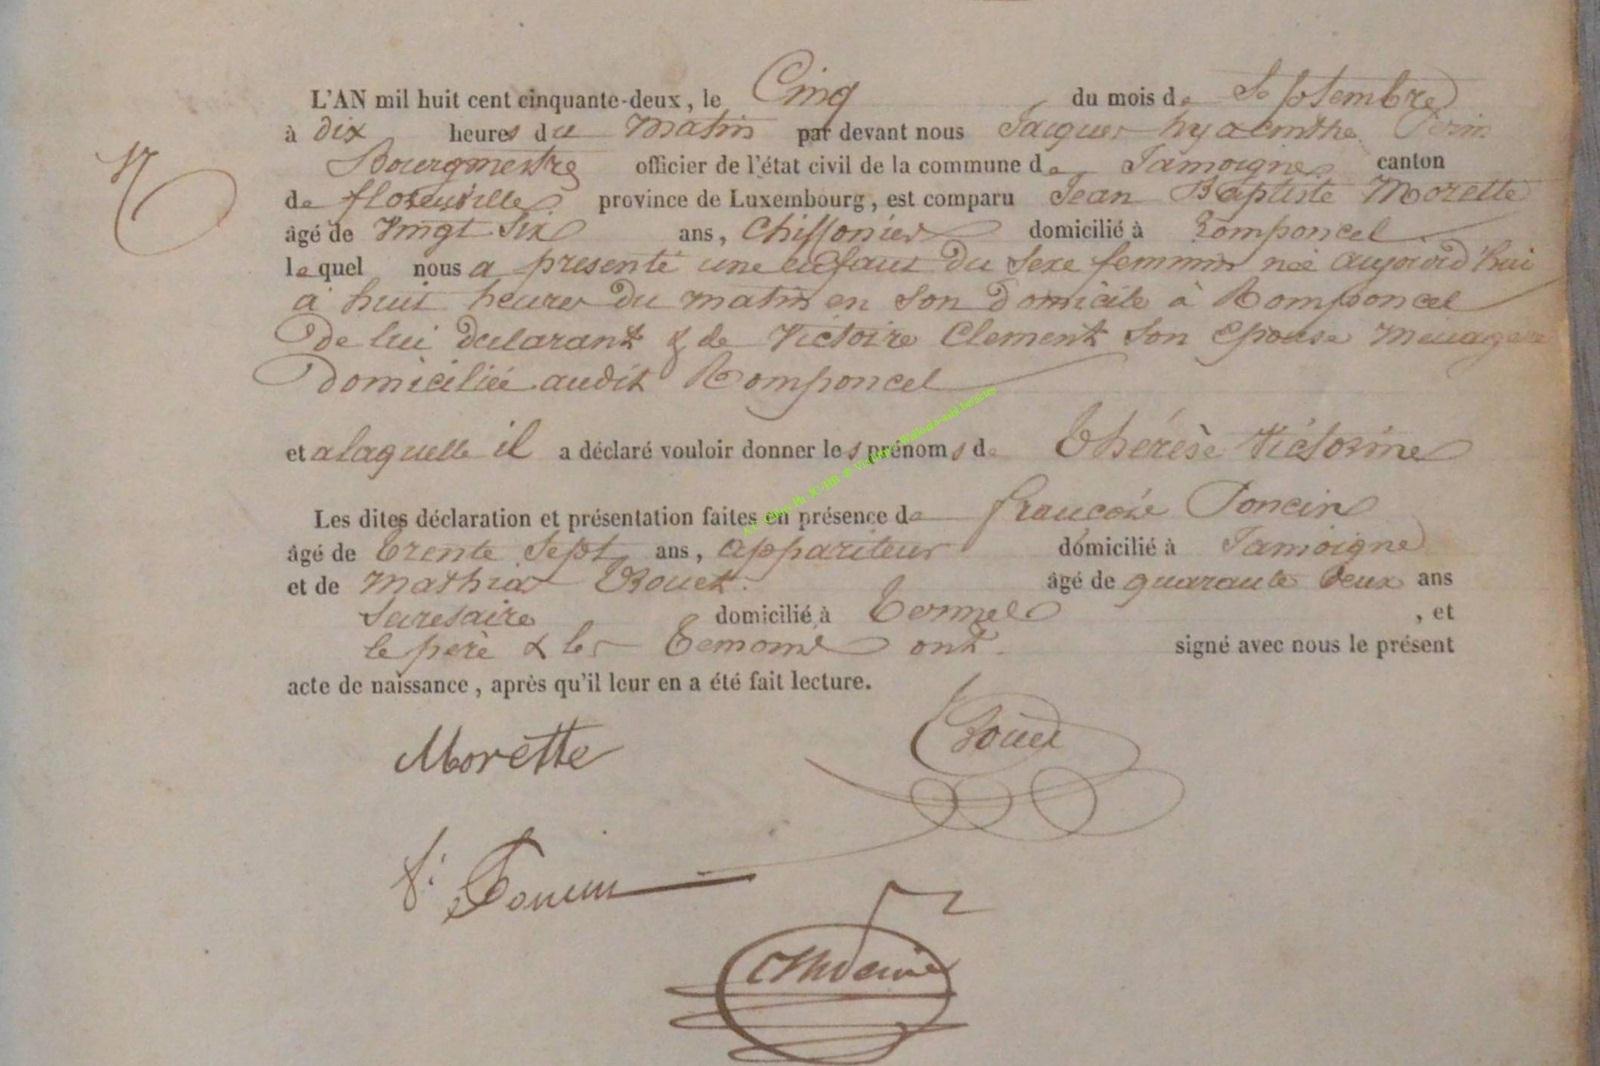 L'AN mil huit cent cinquante-deux, le Cinq du mois de Septembre
à dix heures du matin par devant nous Jacques hyacinthe
Bourgmestre officier de l'état civil de la commune de Jamoigne canton
de florenville province de Luxembourg, est comparu Jean Baptiste Morette
âgé de Vingt Six ans, Chiffonier domicilié à Romponcel
lequel nous a presenté une enfant du Sexe feminin née aujourd'hui
à huit heures du matin en Son Domicile à Romponcel
De lui declarant & de Victoire Clement Son Epouse Menagere
domiciliée audit Romponcel
et a laquelle il a déclaré vouloir donner les prénoms de Thérèse Victorine
Les dites déclaration et présentation faites en présence de françois Poncin
âgé de trente Sept ans, appariteur domicilié à Jamoigne
et de Mathias Rouet âgé de quarante Deux ans
Secretaire domicilié à Termes, et
le père & les temoins ont signé avec nous le présent
acte de naissance, après qu'il leur en a été fait lecture.
Morette
Rouet
f: Poncin